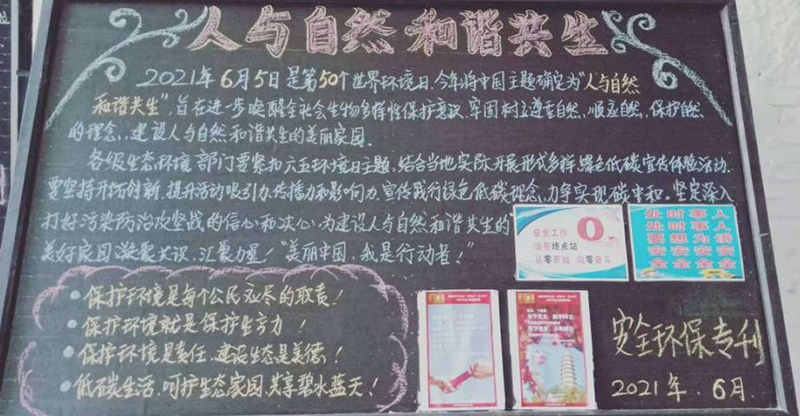 人与自然 和谐共生
2021年6月5日是第50个世界环境日,今年将中国主题确定为"人与自然
和谐共生",旨在进一步唤醒全社会生物多样性保护意识,牢固树立尊重自然、顺应自然、保护自然
的理念,建设人与自然和谐共生的美丽家园。
各级生态环境部门要紧扣六五环境日主题,结合当地实际,开展形式多样,绿色低碳宣传体验活动,
要坚持开拓创新,提升活动吸引力、传播力和影响力,宣传践行绿色低碳理念,力争实现碳中和,坚定深入
打好污染防治攻坚战的信心和决心,为建设人与自然和谐共生的
美好家园凝聚共识、汇聚力量!"美丽中国,我是行动者!"
安全工作 0
没有终点站
从零开始 向零奋斗
处时事人
处时事人
要想为讲
安安安安
全全全全
· 保护环境是每个公民应尽的职责!
· 保护环境就是保护生产力
· 保护环境是责任,建设生态是美德!
· 低碳生活,呵护生态家园,共享碧水蓝天!
安全环保专刊
2021年.6月.